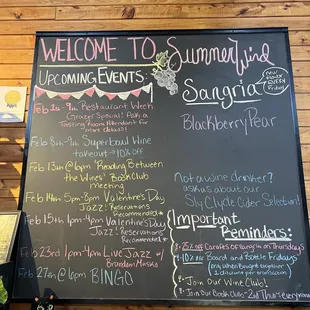 WELCOME TO Summer Wind
Upcoming Events:
Feb 1st-9th Restaurant Week
Grazer Special! Ask a
Tasting Room Attendant for
more details!
Feb 8th-9th Superbowl Wine
takeout → 10% off
Feb 13th @ 6pm "Reading Between
the Wines" Book Club
meeting
Feb 14th 5pm-8pm Valentine's Day
Jazz! Reservations
Recommended*
Feb 15th 1pm-4pm Valentine's Day
Jazz! Reservations
Recommended*
Feb 23rd 1pm-4pm Live Jazz w/
Brandon
Feb 27th @ 6pm BINGO
Sangria
new
EVERY
Friday
Blackberry Pear
Not a wine drinker?
ask us about our
Sly Clyde Cider Selection!
Important
Reminders:
off Carafes of Sangria on Thursdays
10% off Board and Bottle Fridays
when bought together
1 discount per transaction
- Join Our Wine Club!
- Join Our Book Club - 2nd Thurs every